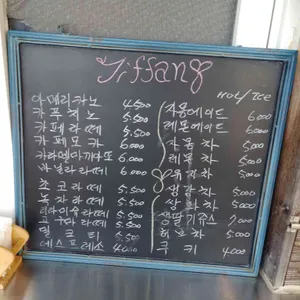 Tiffany
HOT/ICE
아메리카노 4.500
카푸치노 5.500
카페라떼 5.500
카페모카 6.000
카라멜마끼아또 6.000
바닐라라떼 6.000
초코라떼 5.500
녹차라떼 5.500
티라미슐라떼 5.500
고구마라떼 5.500
밀크티 5.500
에스프레소 4.000
자몽에이드 6.000
레몬에이드 6.000
자몽차 5.000
레몬차 5.000
유자차 5.000
생강차 5.000
쌍화차 5.000
생과일쥬스 7.000
허브차 5.000
쿠키 4.000